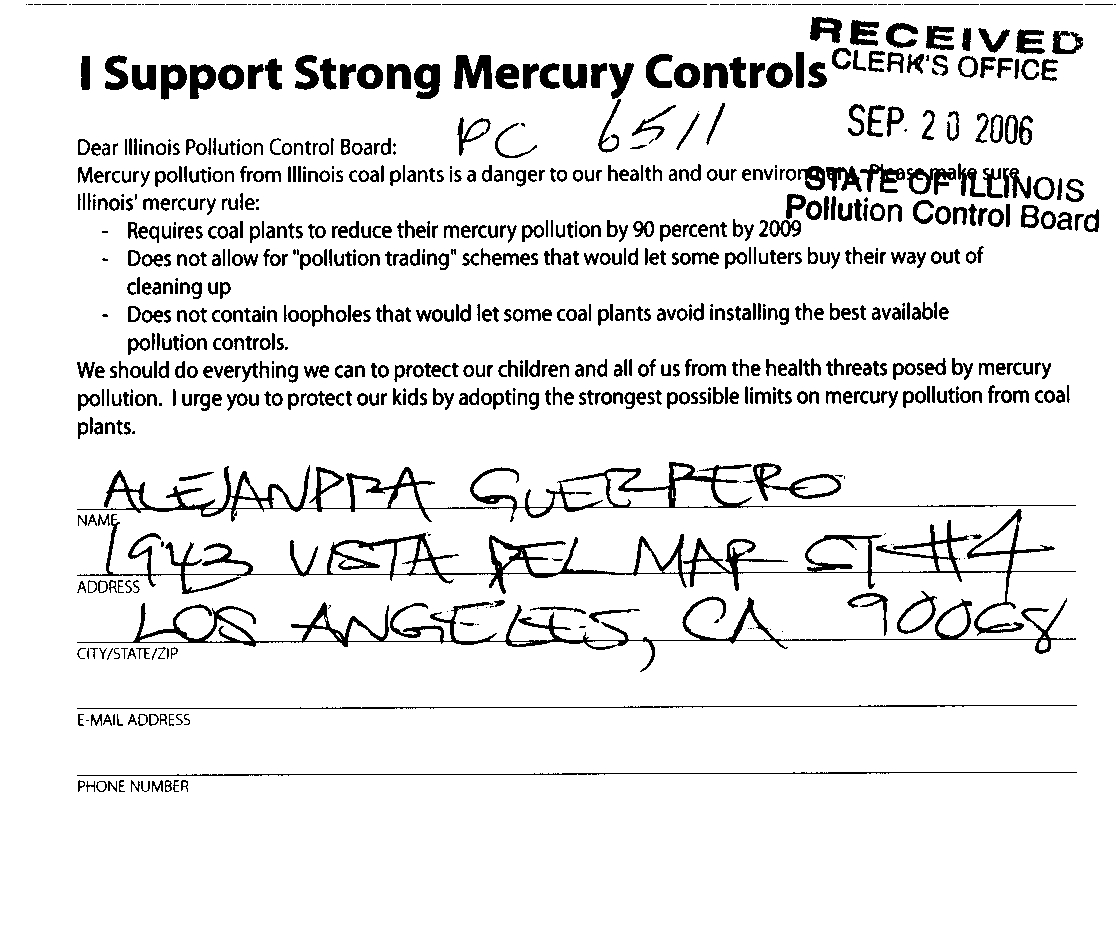 RECEIVED
CLERK'S OFFICE
SEP. 20 2006
STATE OF ILLINOIS
Pollution Control Board
I Support Strong Mercury Controls
PC 6511
Dear Illinois Pollution Control Board:
Mercury pollution from Illinois coal plants is a danger to our health and our environment. Please make sure
Illinois' mercury rule:
- Requires coal plants to reduce their mercury pollution by 90 percent by 2009
- Does not allow for "pollution trading" schemes that would let some polluters buy their way out of
cleaning up
- Does not contain loopholes that would let some coal plants avoid installing the best available
pollution controls.
We should do everything we can to protect our children and all of us from the health threats posed by mercury
pollution. I urge you to protect our kids by adopting the strongest possible limits on mercury pollution from coal
plants.
ALEJANDRA GUERRERO
NAME
1943 VISTA DEL MAR ST #4
ADDRESS
LOS ANGELES, CA 90068
CITY/STATE/ZIP
E-MAIL ADDRESS
PHONE NUMBER